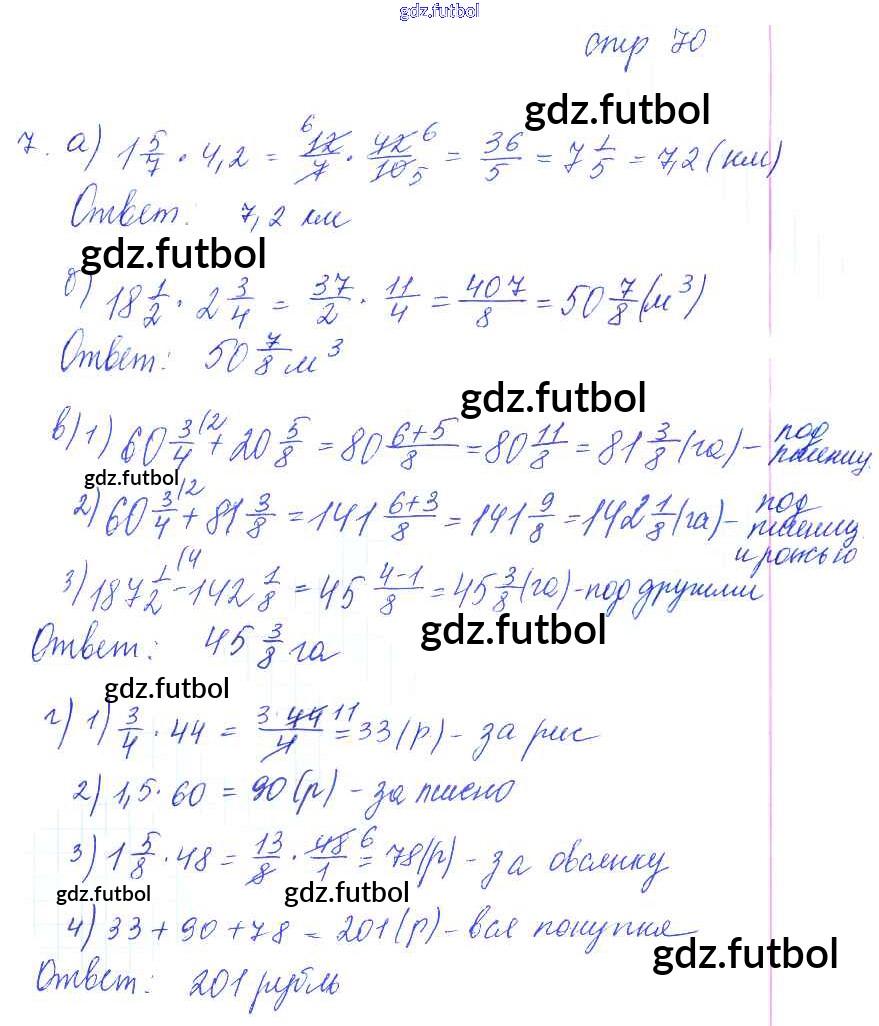 gdz.futbol
стр 70
gdz.futbol
7. а) 1 5/7 · 4,2 = 12/7 · 42/10 = 36/5 = 7 1/5 = 7,2 (км)
Ответ: 7,2 км
gdz.futbol
б) 18 1/2 · 2 3/4 = 37/2 · 11/4 = 407/8 = 50 7/8 (м³)
Ответ: 50 7/8 м³
gdz.futbol
в) 1) 60 3/4 (2 + 20 5/8 = 80 6+5/8 = 80 11/8 = 81 3/8 (га) – под пшениц.
gdz.futbol
2) 60 3/4 (2 + 81 3/8 = 141 6+3/8 = 141 9/8 = 142 1/8 (га) – под пшениц. и рожью
3) 187 1/2 (4 - 142 1/8 = 45 4-1/8 = 45 3/8 (га) - под другими
gdz.futbol
Ответ: 45 3/8 га
gdz.futbol
г) 1) 3/4 · 44 = 3·44 11/4 = 33 (р) – за рис
2) 1,5 · 60 = 90 (р) – за пшено
3) 1 5/8 · 48 = 13/8 · 48 6/1 = 78 (р) - за овсянку
gdz.futbol
gdz.futbol
4) 33 + 90 + 78 = 201 (р) – вся покупка
gdz.futbol
Ответ: 201 рубль